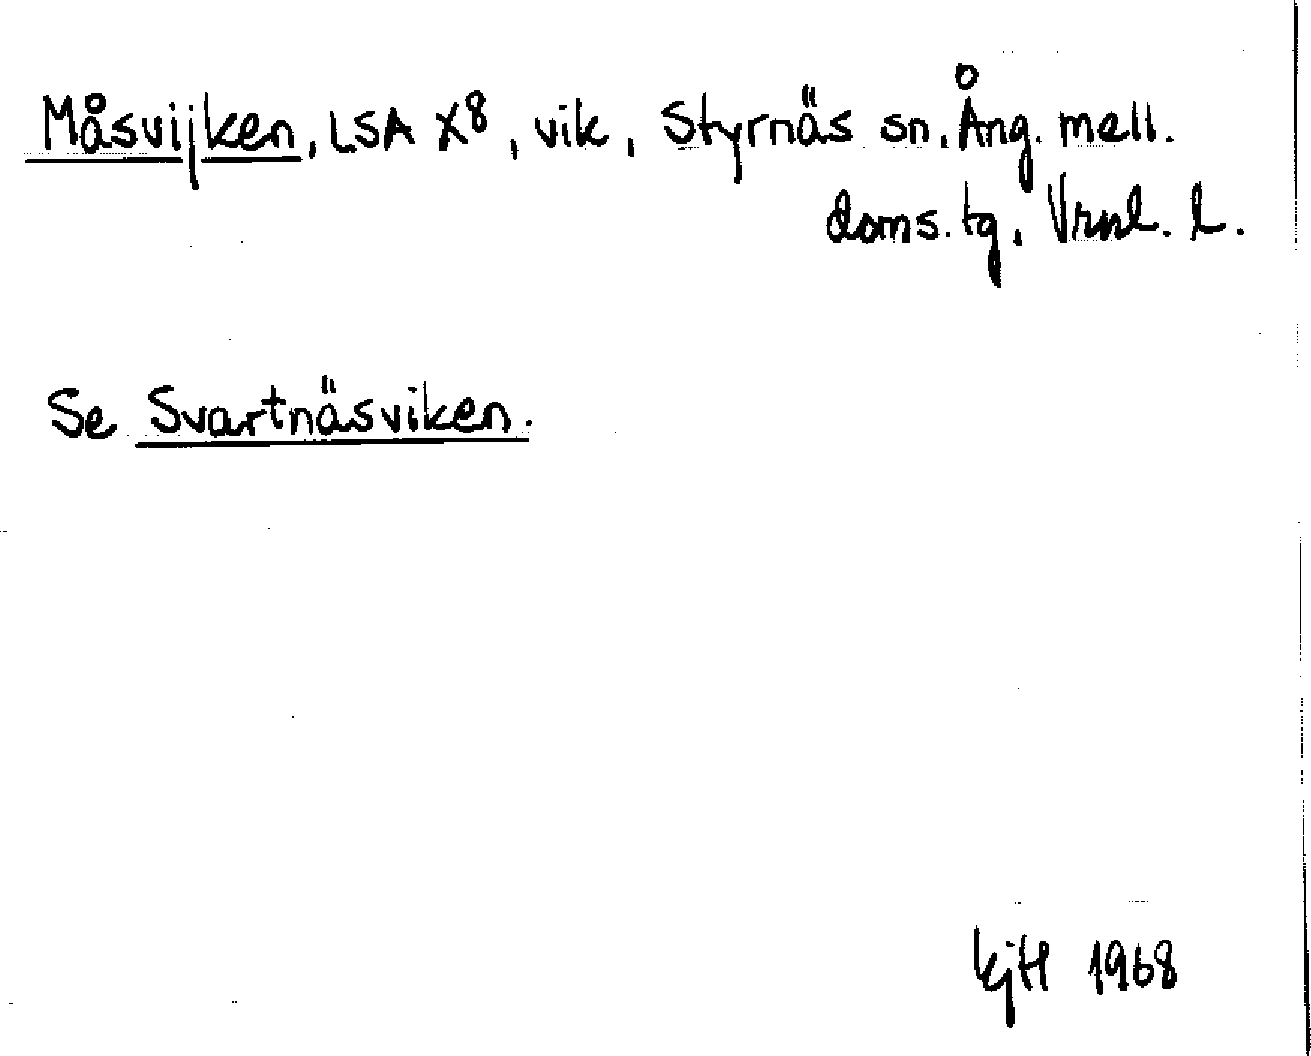 Måsvijken, LSA X8, vik, Styrnäs sn, Ång. mell.
doms. tg, Vrnl. l.
Se Svartnäsviken.
KjH 1968